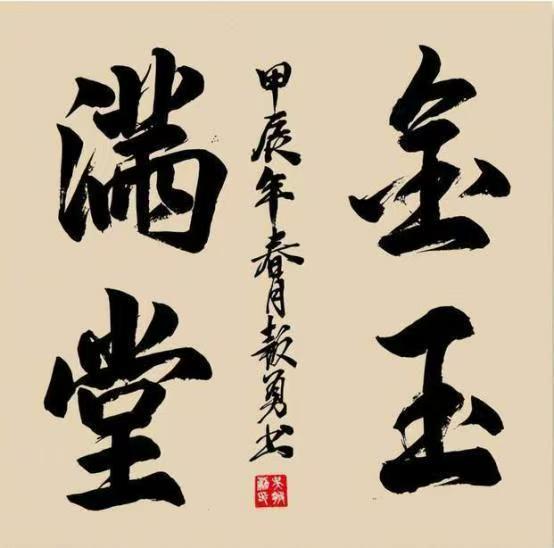 金玉
满堂
甲辰年春月敖勇书